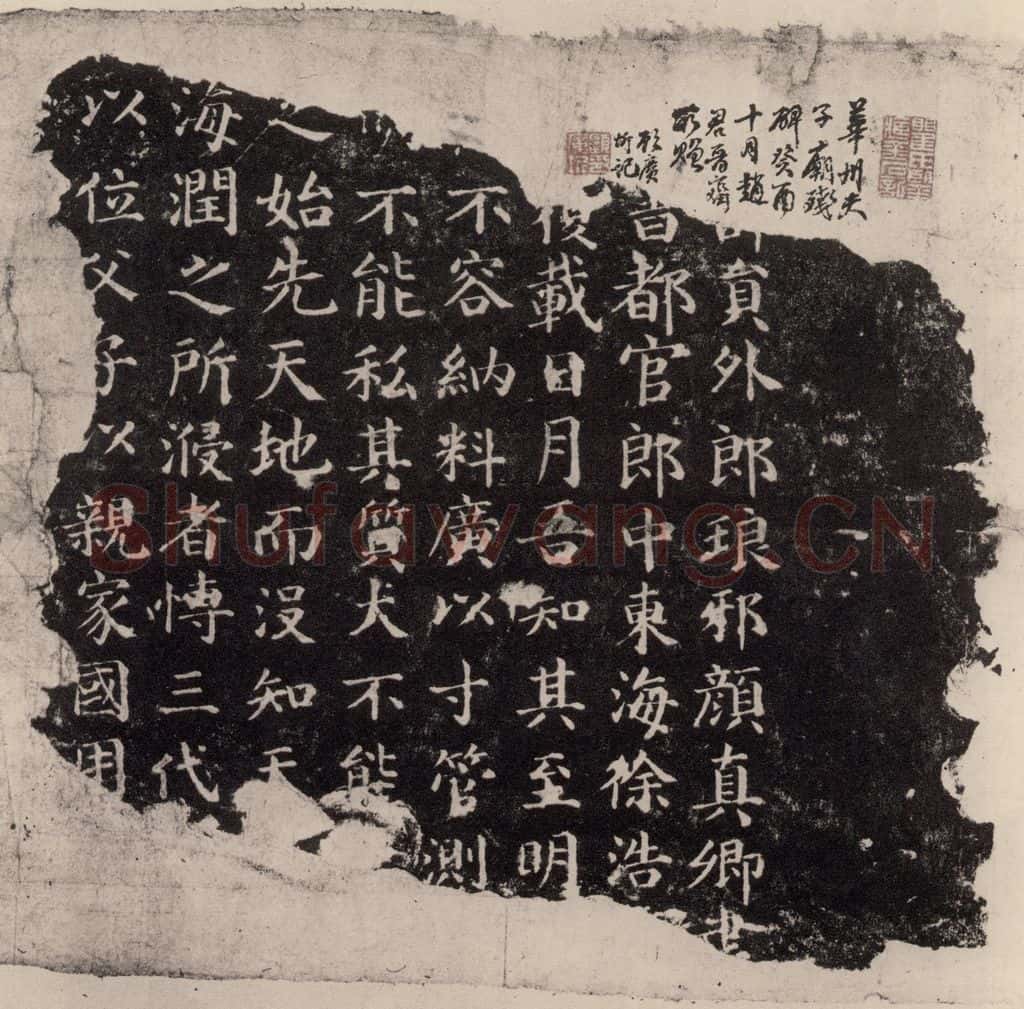 華州夫
子廟殘
碑癸酉
十月趙
君晉齋
所贈
顧廣
圻記
員外郎琅邪顏真卿書
都官郎中東海徐浩
載日月吾知其至明
不容納料廣以寸管測
不能私其質大不能
之始先天地而没知天
海潤之所濅者愽三代
以位父子以親家國用
Shufawang.CN